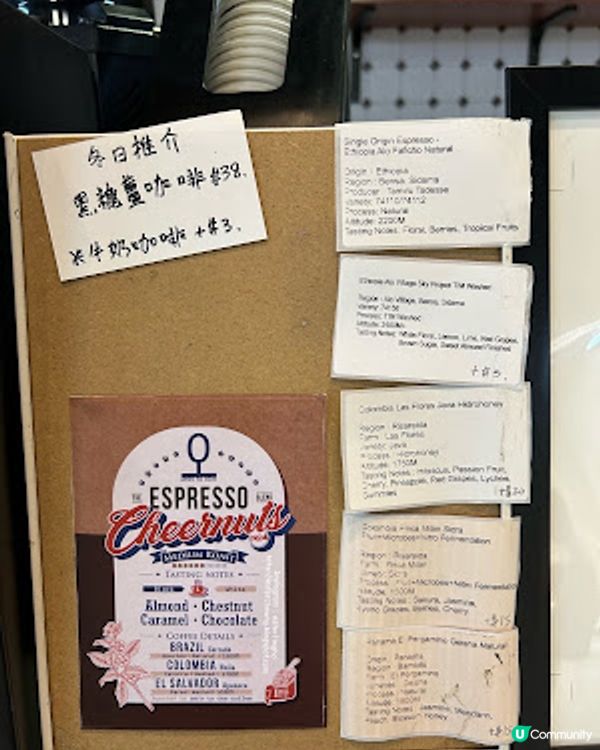 冬日推介
黑糖薑咖啡 $38.
※牛奶咖啡 +$3.
Single Origin Espresso -
Ethiopia Alo Natural
Origin : Ethiopia
Region : Bensa, Sidama
Producer : Tamiru Tadesse
Variety: 74110/74112
Process: Natural
Altitude: 2200M
Tasting Notes: Floral, Berries, Tropical Fruits
Ethiopia Alo Village Washed
Region : Alo Village, Bensa, Sidama
Variety: 74158
Process: Washed
Tasting Notes: White Floral, Lemon, Lime, Red Grapes,
Brown Sugar, Sweet Almond Finished
+$5.
Colombia Las Flores Java Hidrohoney
Region : Risaralda
Farm : Las Flores
Variety: Java
Process : Hidrohoney
Altitude: 1750M
Tasting Notes : Hibiscus, Passion Fruit,
Cherry, Pineapple, Red Grapes, Lychee,
Gummies
+$20
Colombia Finca Milan
Fermentation
Region : Risaralda
Farm : Finca Milan
Fermentation
Tasting Notes : Sakura, Jasmine,
Kyoho Grapes, Berries, Cherry
+$15
Panama El Pergamino Geisha Natural
Origin : Panama
Farm : El Pergamino
Varietal : Geisha
Process : Natural
Tasting Notes : Jasmine, Mandarin,
Peach, Blossom Honey
THE ESPRESSO BLEND
Cheernuts
MEDIUM ROAST
TASTING NOTES
BLACK WHITE
Almond · Chestnut
Caramel · Chocolate
COFFEE DETAILS
BRAZIL Cerrado
COLOMBIA Huila
EL SALVADOR Apaneca
U Community